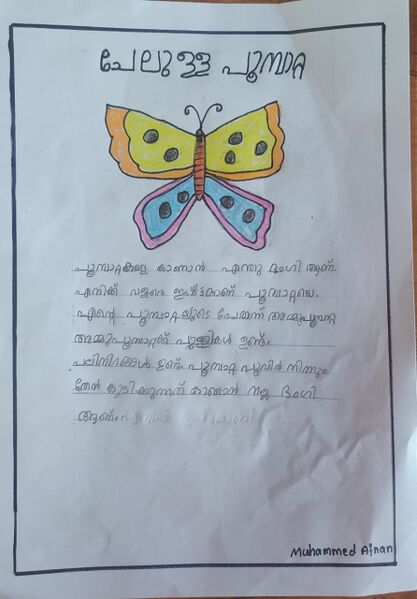 ചേലുള്ള പൂമ്പാറ്റ
പൂമ്പാറ്റകളെ കാണാൻ എന്തു ഭംഗി ആണ്.
എനിക്ക് വളരെ ഇഷ്ട്ടമാണ് പൂമ്പാറ്റയെ.
എന്റെ പൂമ്പാറ്റയുടെ പേരാണ് അമ്മുപൂമ്പാറ്റ
അമ്മുപൂമ്പാറ്റക്ക് പുള്ളികൾ ഉണ്ട്.
പലനിറങ്ങൾ ഉണ്ട്. പൂമ്പാറ്റ പൂവിൽ നിന്നും
തേൻ കുടിക്കുന്നത് കാണാൻ നല്ല ഭംഗി
ആണ്.
Muhammed Afnan